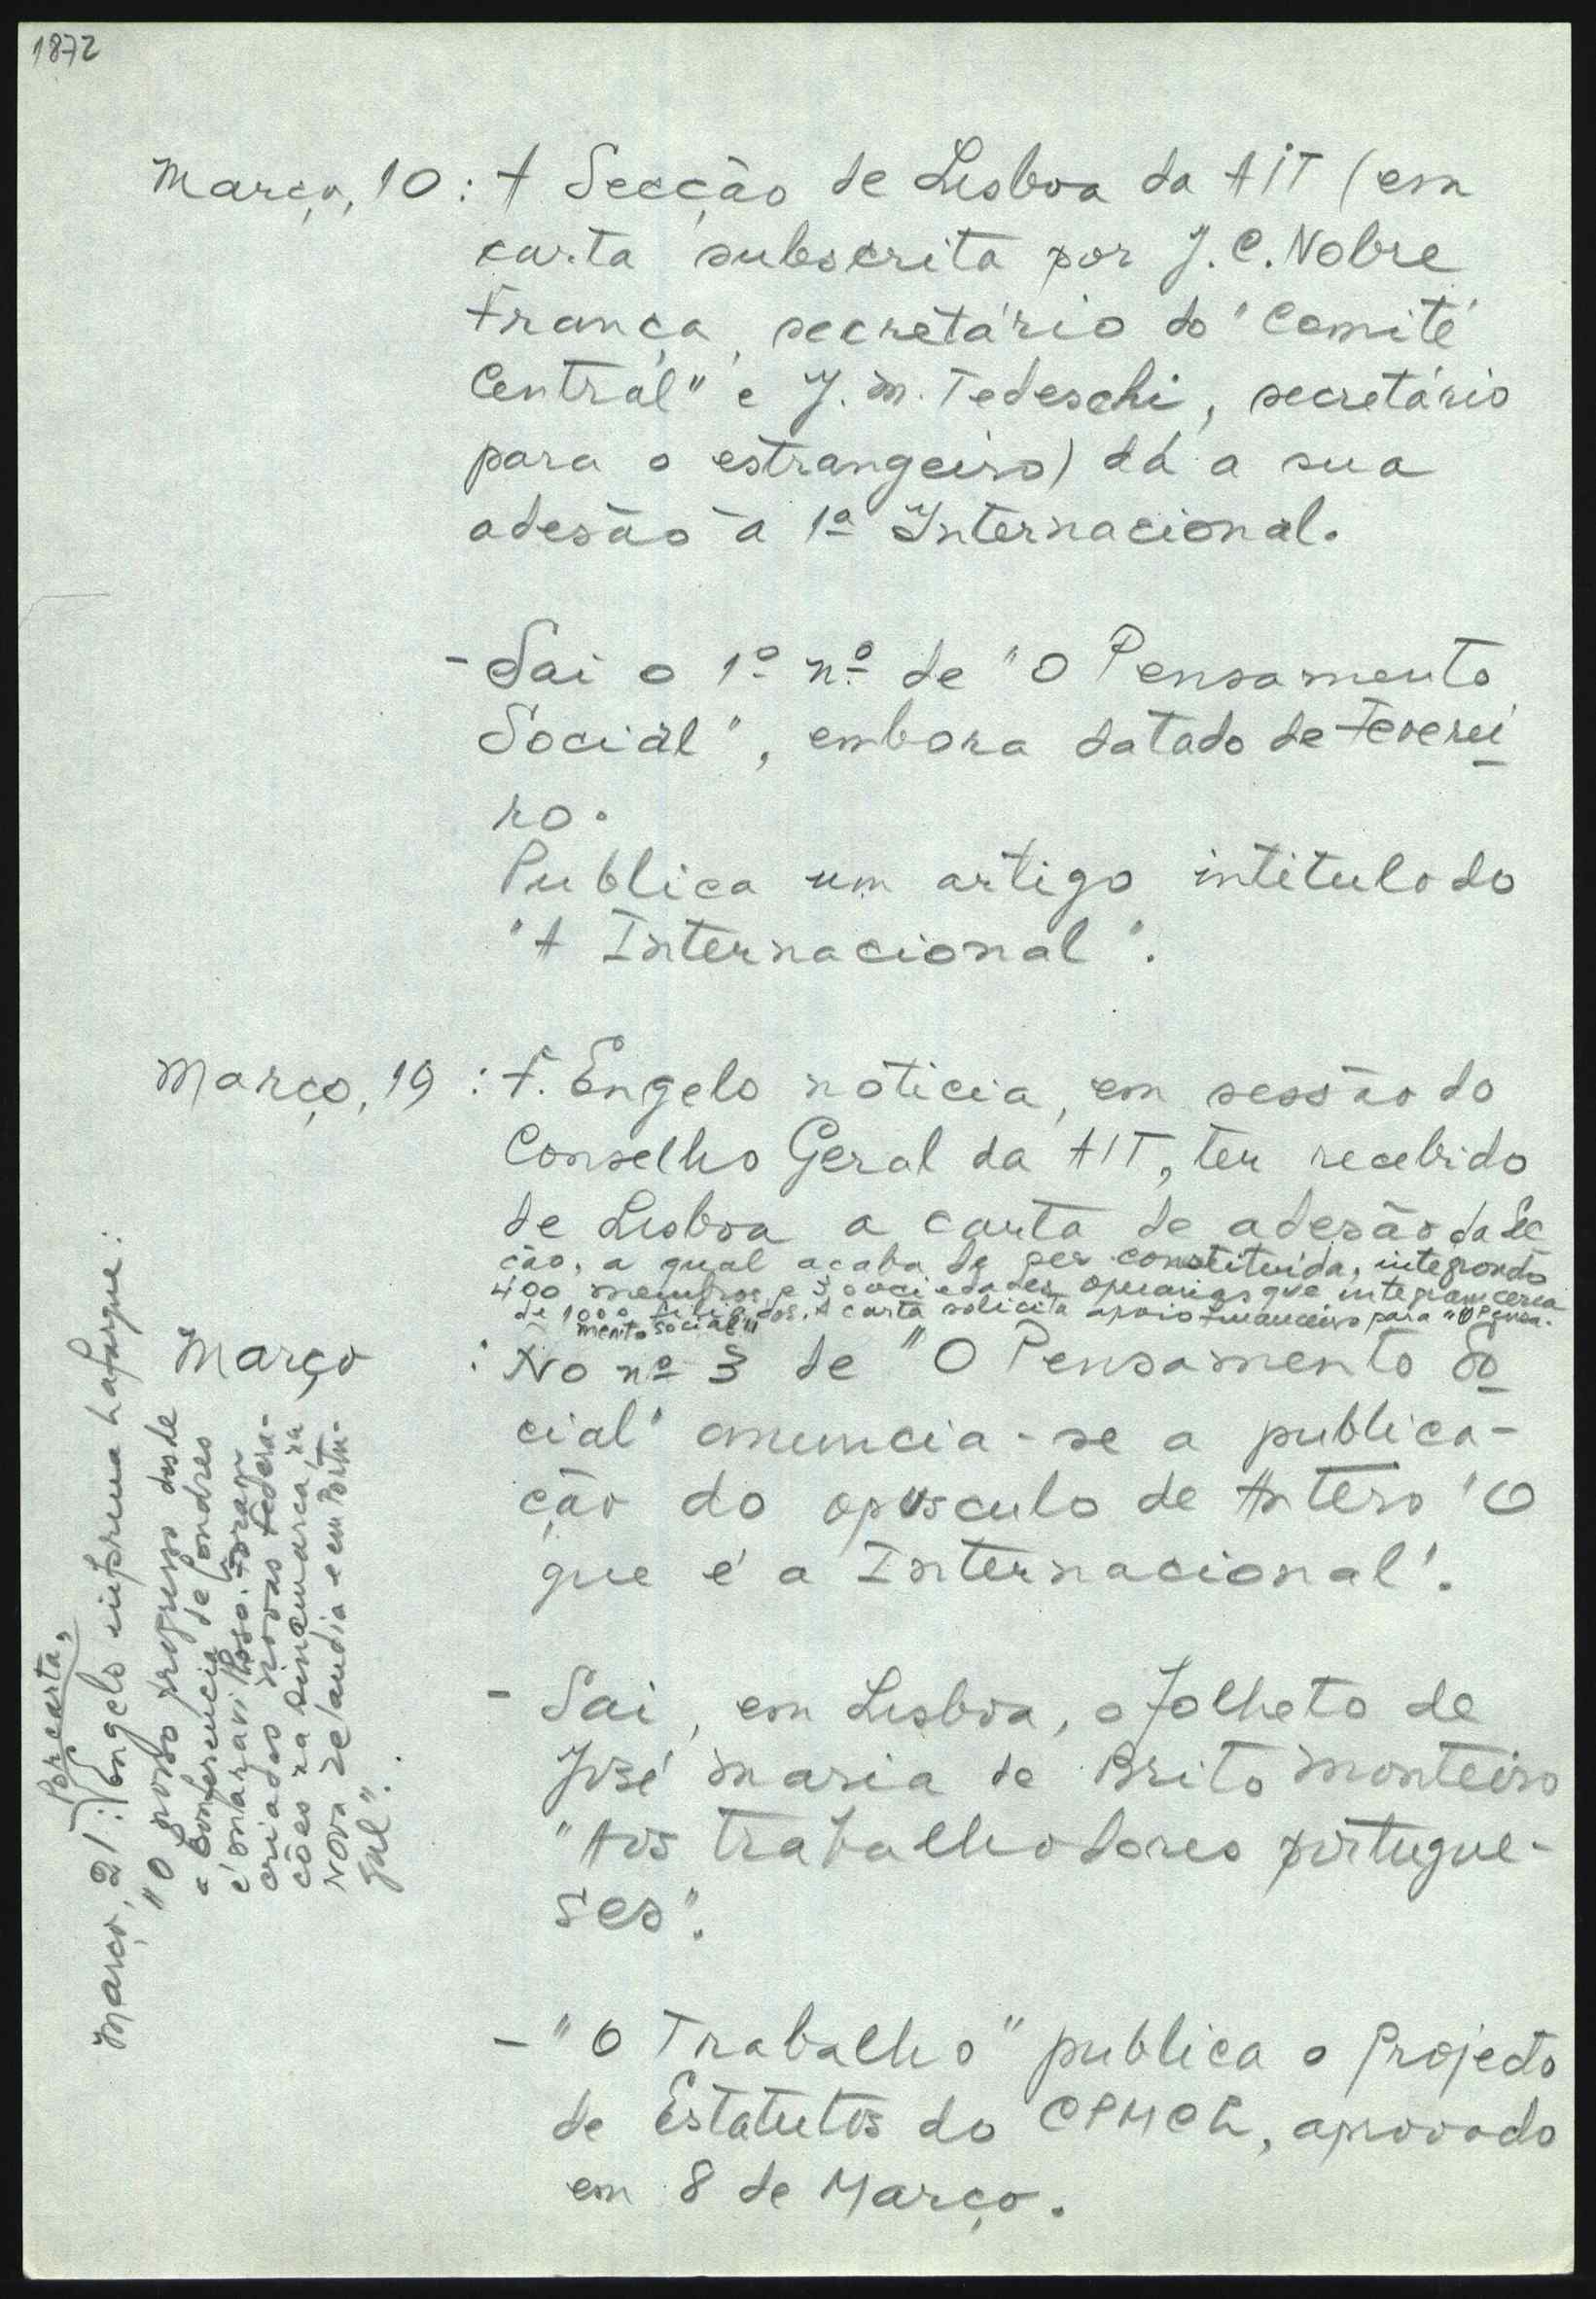 1872
Março, 10 : A Secção de Lisboa da AIT (em
carta subscrita por J. C. Nobre
França, secretário do "Comité
Central" e J. M. Tedeschi, secretário
para o estrangeiro) dá a sua
adesão à 1ª Internacional.
- Sai o 1º nº de "O Pensamento
Social", embora datado de Feverei
ro.
Publica um artigo intitulado
"A Internacional".
Março, 19 : F. Engels noticia, em sessão do
Conselho Geral da AIT, ter recebido
de Lisboa a carta de adesão da Sec
ção, a qual acaba de ser constituída, integrando
400 membros e 3 sociedades operárias que integram cerca
de 1000 filiados. A carta solicita apoio financeiro para "O Pensa-
mento Social"
Março : No nº 3 de "O Pensamento So
cial" anuncia-se a publica-
ção do opúsculo de Antero "O
que é a Internacional".
- Sai, em Lisboa, o folheto de
José Maria de Brito Monteiro
"Aos trabalhadores portugue-
ses".
- "O Trabalho" publica o Projecto
de Estatutos do CPMCL, aprovado
em 8 de Março.
Por carta,
Março, 21 : Engels informa Lafargue :
"O nosso progresso desde
a Conferência de Londres
é maravilhoso. Foram
criadas novas Federa-
ções na Dinamarca, na
Nova Zelandia e em Portu-
gal".